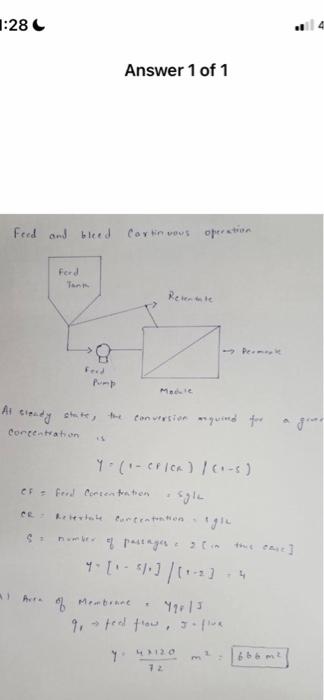 :28
4
Answer 1 of 1
Feed and bleed Continuous operation
Feed
Tank
Retentate
→ Permeate
Feed
Pump
Module
At steady state, the conversion required for a
concentration is
Y = (1 - CF/CR) / (1-S)
CF = Feed Concentration = 5g/L
CR = Retentate Concentration =
S = number of passages = 2 [in this case]
Y = [1 - 5/1] / [1-2] = 4
Area of Membrane = Yqf/J
→ feed flow, J - flux
Y = 4×120 / 72 m² = 666 m²